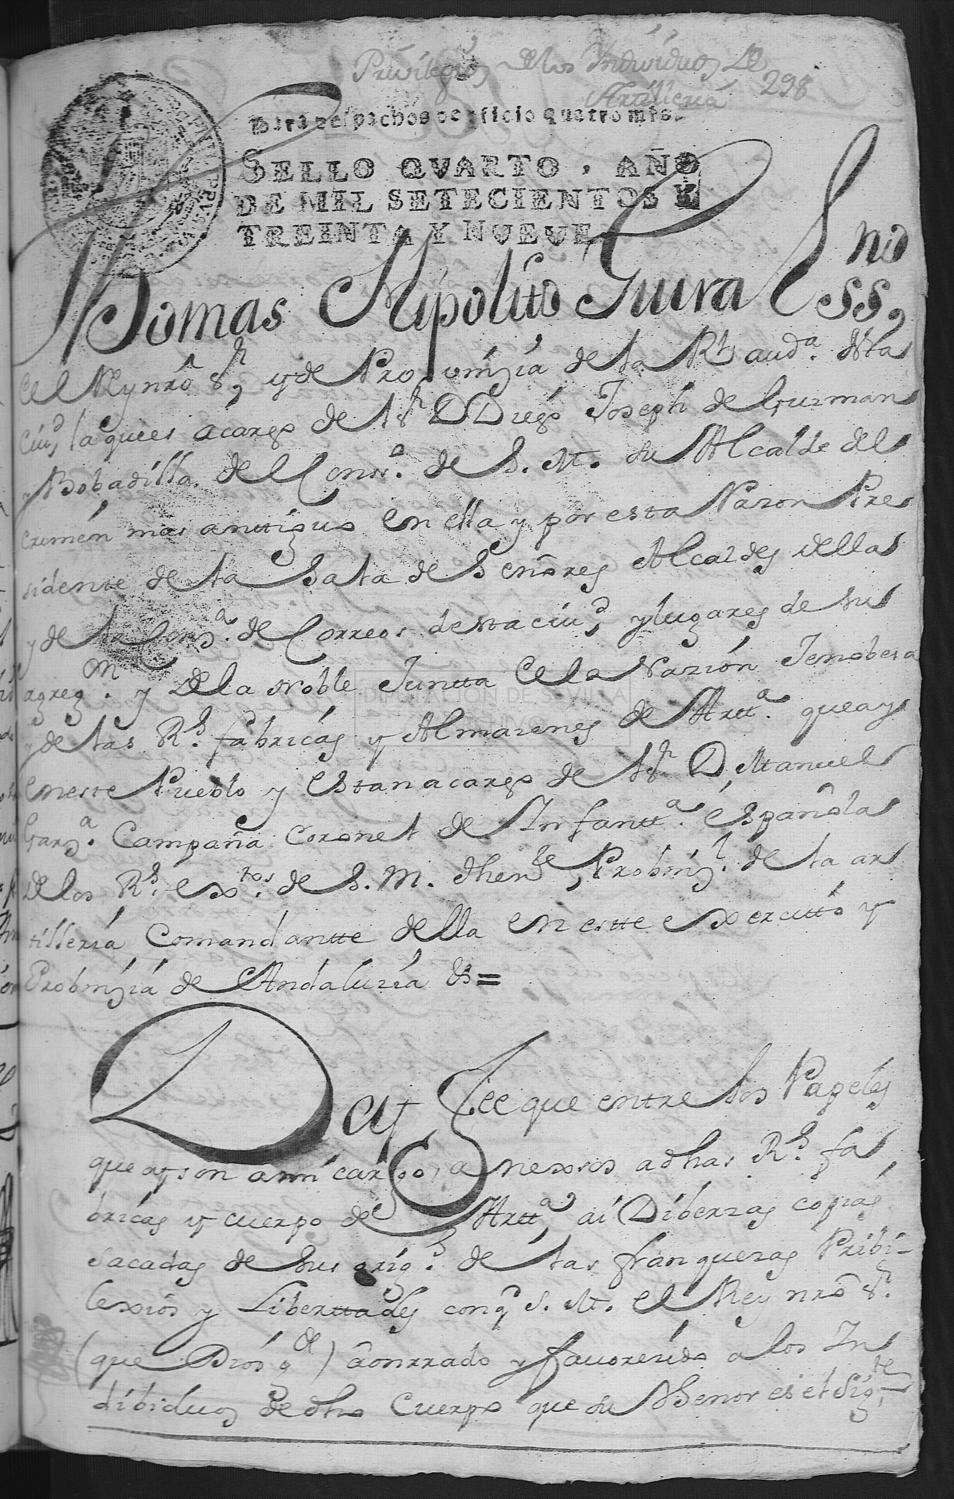 Privilegios de los Individuos de
Artilleria 298
Para despachos de oficio quatro mrs.
SELLO QVARTO, AÑO
DE MIL SETECIENTOS Y
TREINTA Y NUEVE.
Thomas Hipolitto Guerra Esno
del Rey nro Sr, y de Provinzia de la Rl audª. desta
ciud, la que es acargo de el Sr D Diego Joseph de Guzman
y Bobadilla del Consº. de S. M. su Alcalde del
crimen mas anttiguo en ella y por esta Razon Pre
sidente de la Sala de Señores Alcaldes della
y de la Comª. de Correos desta ciud, y lugares de su
agreg.on y de la Noble Juntta de la Nazion Jenobesa
y de las Rs. fabricas y Almazenes de Artt.ª que ay
en este Pueblo y estan acargo de el Sr D Manuel
Garz.ª Campaña Coronel de Infantt.ª Española
de los Rs. ex.tos de S. M. thente, Probinz.l de la ar
tilleria Comandantte della en estte exercitto y
Probinzia de Andaluzia &=
Doy fee que entre los Papeles
que ay son a mi cargo, anexsos a dhas Rs. fa
bricas y cuerpo de Artt.ª ai Diberzas copias
sacadas de sus orig.s de las franquezas Pribi-
lexios y Liberttades conq S. M. el Rey nro Sr.
(que Dios gde) a onrrado y favorezido a los In
dibiduos de dho Cuerpo que su thenor es el Sig.te